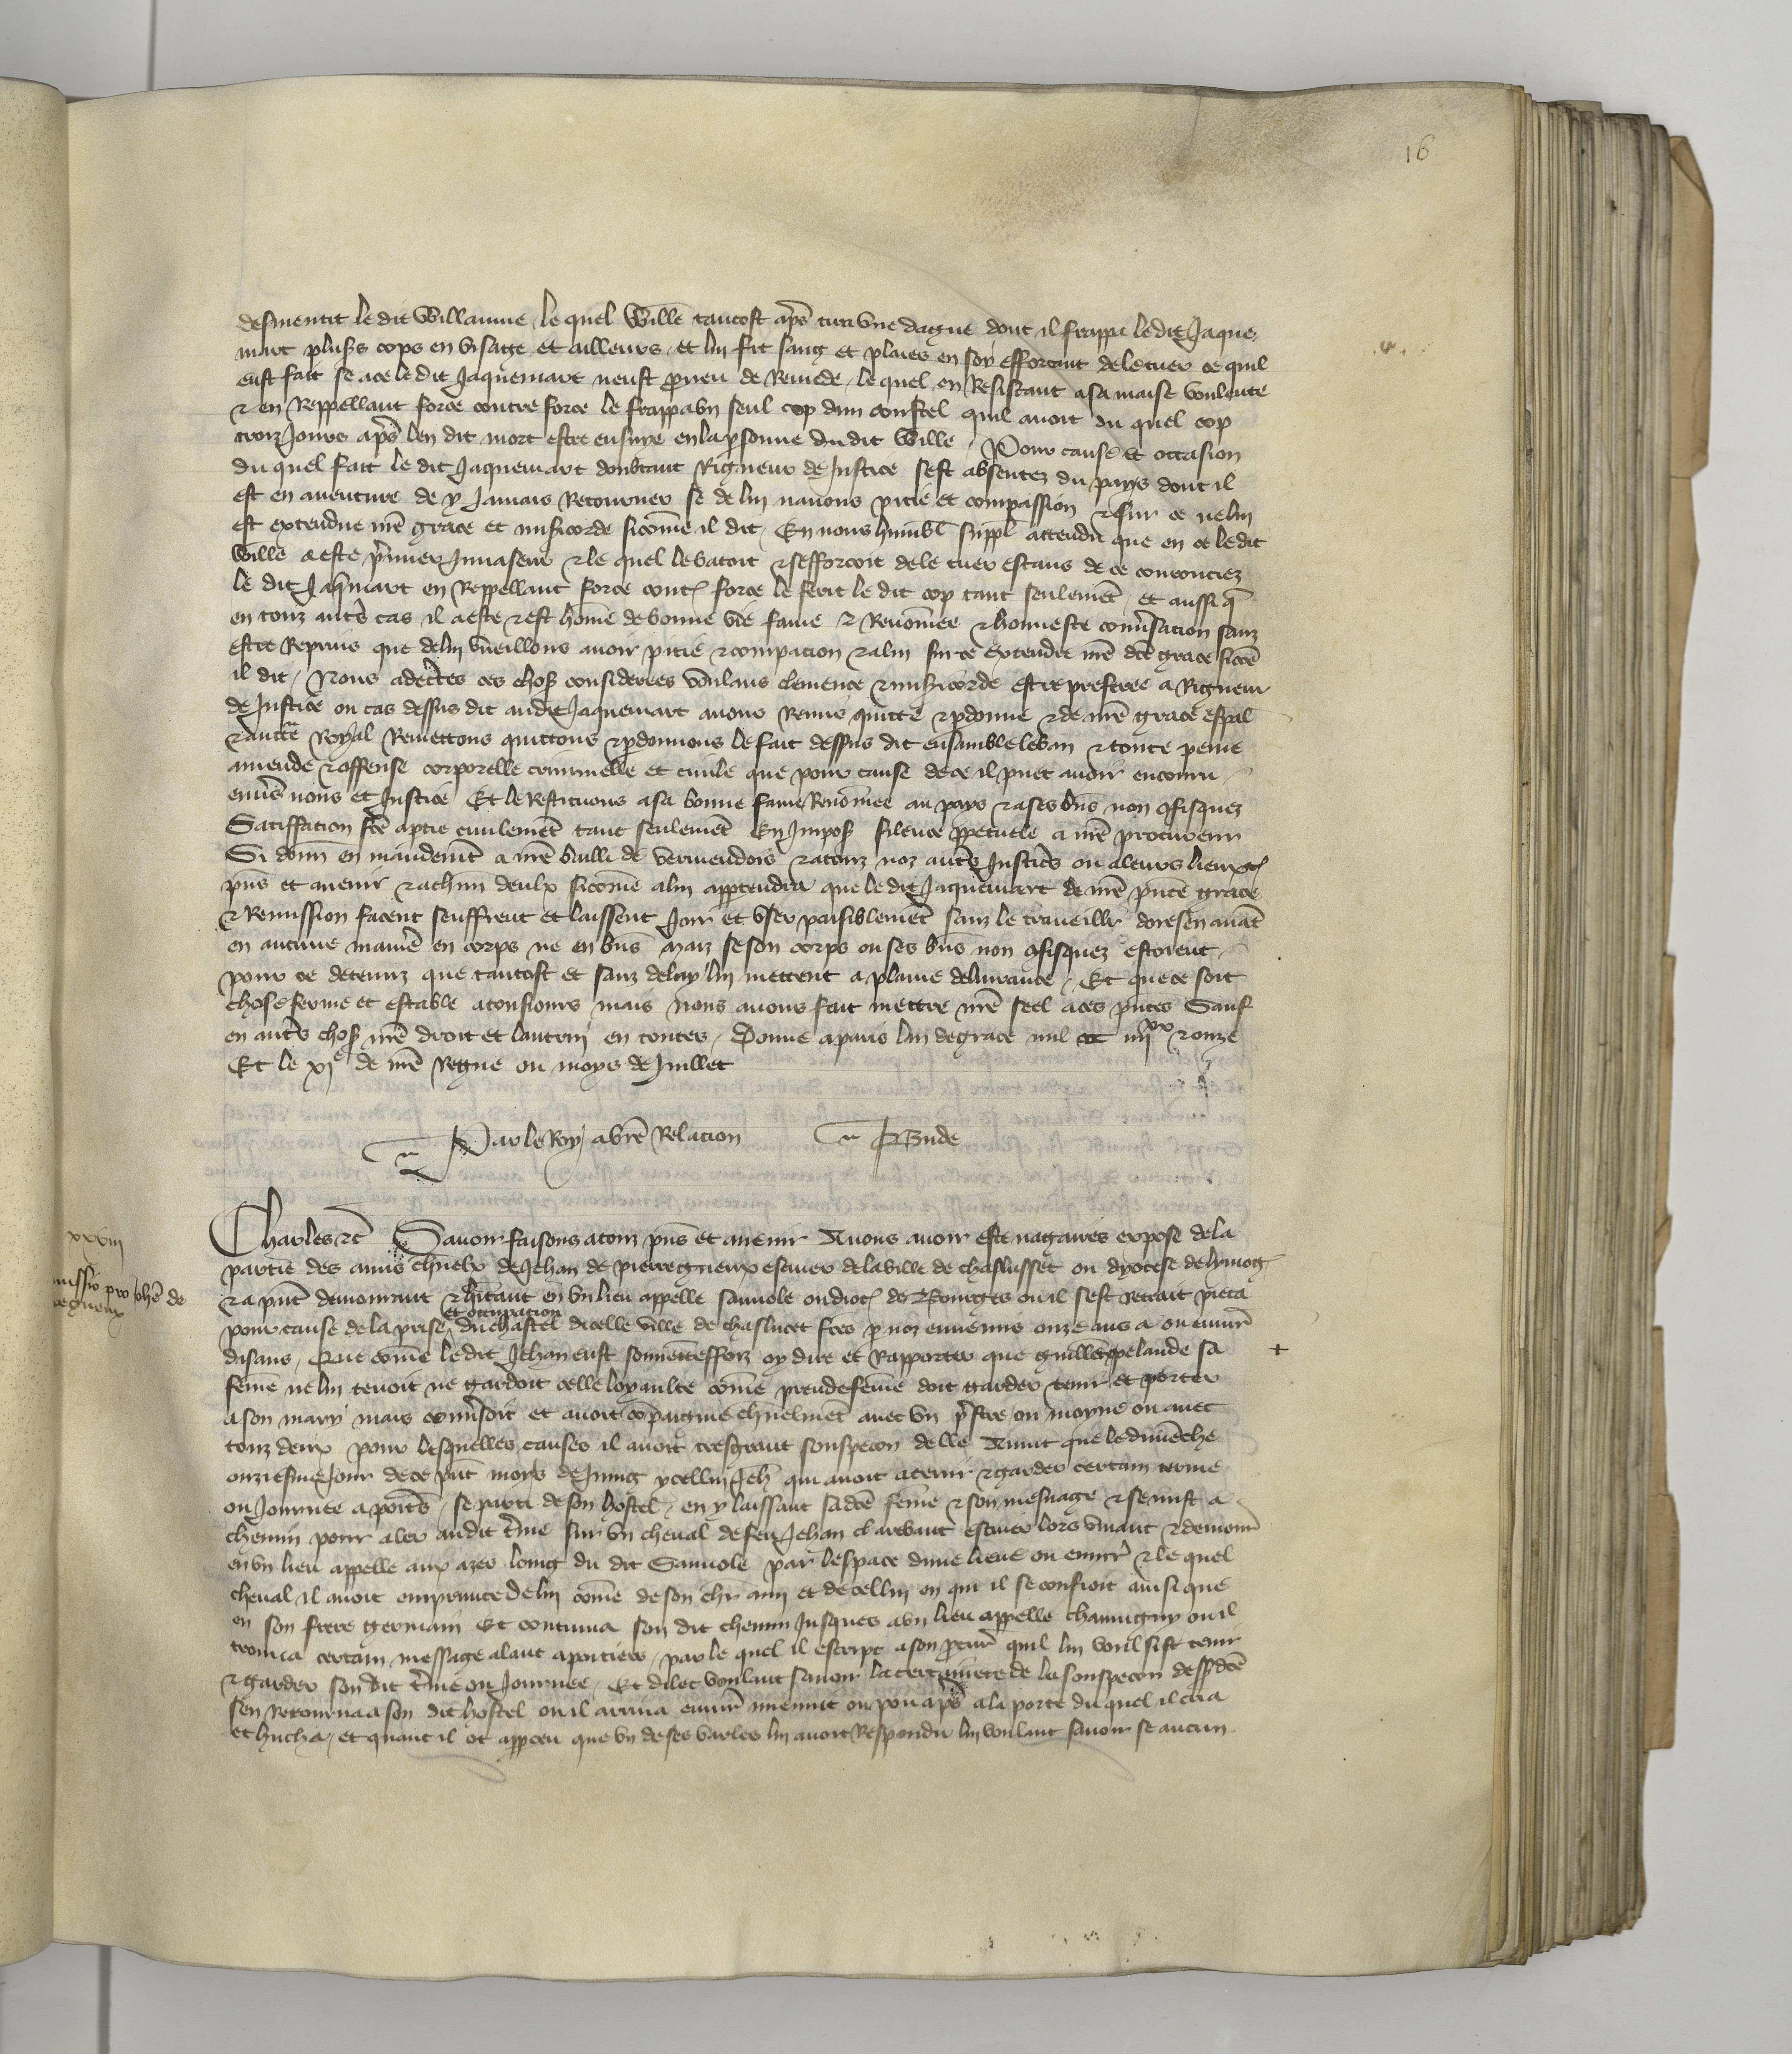 16
desmentit le dit Willaume, le quel Wille tantost apres tira une dague dont il frappa ledit Jaque
mart pluss cops en visage et ailleurs, et lui fit sang et plaies en soy efforcant de le tuer ce quil
eust fait se a ce le dit Jaquemart neust pourveu de Remede, le quel en Resistant a sa maise voulente
et en Reppellant force contre force le frappa un seul cop dun coustel quil avoit du quel cop
trois Jours apres len dit mort estre ensuye en la personne du dit Wille, Pour cause et occasion
du quel fait le dit Jaquemart doubtant Rigueur de Justice sest absentez du pays dont il
est en aventure de y Jamais Retourner se de lui navons pitie et compassion et sur ce ne lui
est extendue nre grace et misicorde sicome il dit, En nous humbl suppl attendu que en ce le dit
Wille a este pmier Invaseur et le quel le batoit et sefforcoit de le tuer estans de ce courouciez
le dit Jaqmart en Reppellant force cont force le ferit le dit cop tant seulemet, et aussi q
en touz autres cas il a este et est home de bonne vie fame et Renomee et honneste conversation sanz
estre Reprins que de lui vueillons avoir pitie et compacion et a lui sur ce extendre nre dte grace sicoe
il dit, Nous adecertes ces choss considerees voulans clemence et misicorde estre preferee a Rigueur
de Justice ou cas dessus dit audit Jaquemart avons Remis quitte et pdonne et de nre grace espal
et aucte Royal Remettons quittons et pdonnons le fait dessus dit ensamble le ban et toute peine
amende et offense corporelle criminelle et civile que pour cause de ce il puet avoir encouru
envers nous et Justice Et le Restituons a sa bonne fame Renomee au pays et a ses bns non ofisquez
Satiffacion fce a ptie civilemet tant seulemet En Impos silence ppetuele a nre procureur
Si donn en mandemt a nre bailli de Vermendois et a touz noz autres Justiciers ou a leurs lieux
pns et avenir et a chun deulx sicome a lui apptendra que le dit Jaquemart de nre pnte grace
et Remission facent seuffrent et laissent Joir et user paisiblemet sanz le traveillr doresenavat
en aucune maniere en corps ne en bns maiz se son corps ou ses bns non ofisquez estoient
pour ce detenuz que tantost et sanz delay lui mettent a plaine delivrance, Et que ce soit
chose ferme et estable a tousiours mais nous avons fait mettre nre seel a ces pntes Sauf
en autres choss nre droit et lautruy en toutes, Donne a paris lan de grace mil ccc iiii xx et onze
Et le xi e de nre Regne ou moys de Juillet
Par le Roy a vre Relacion P Bude
xxviii
missio pro Johe de
regueux
Charles etc Savoir faisons a touz pns et avenir A nous avoir este nagaires expose de la
partie des amis charnelx de Jehan de pierregueux escuier de la ville de chaslusset ou dyocese de lymog
et a pnt demourant et hitant en un lieu appelle sauuole ou dioc de Bourges ou il sest Retrait pieca
et occupacion
pour cause de la prise du chastel dicelle ville de chaslucet fces p noz ennemis onze ans a ou envir
disans, Que come le dit Jehan eust souventesfoiz oy dire et Rapporter que guillete pelaude sa +
feme ne lui tenoit ne gardoit celle loyaulte come preudefeme doit garder tenir et porter
a son mary mais conversoit et avoit copaignie charnelmet avec un pstre ou moyne ou avec
touz deux pour lesquelles causes il avoit tresgrant souspecon delle Avint que le dimenche
onziesme Jour de ce pnt moys de Juing ycellui Jeh qui avoit a tenir et garder certain terme
ou Journee a poitiers, se parti de son hostel, en y laissant sa dce feme et son mesnage et se mist a
chemin pour aler au dit terme sur un cheval de feu Jehan clarebaut escuier lors vivant et demour
en un lieu appelle aux azes loing du dit Sauuole par lespace dune lieue ou envir et le quel
cheval il avoit emprunte de lui come de son chr ami et de cellui en qui il se confioit ainsi que
en son frere germain Et continua son dit chemin Jusques a un lieu appelle chauuigny ou il
trouva certain message alant a poitiers, par le quel il escript a son pcur quil lui voulsist tenir
et garder son dit terme ou Journee, Et dilec voulant savoir la certainete de la souspecon dessdce
sen Retourna a son dit hostel ou il arriva envir mienuit ou pou apres a la porte du quel il cria
et hucha, et quant il ot appceu que un de ses varles lui avoit Respondu lui voulant savoir se aucun